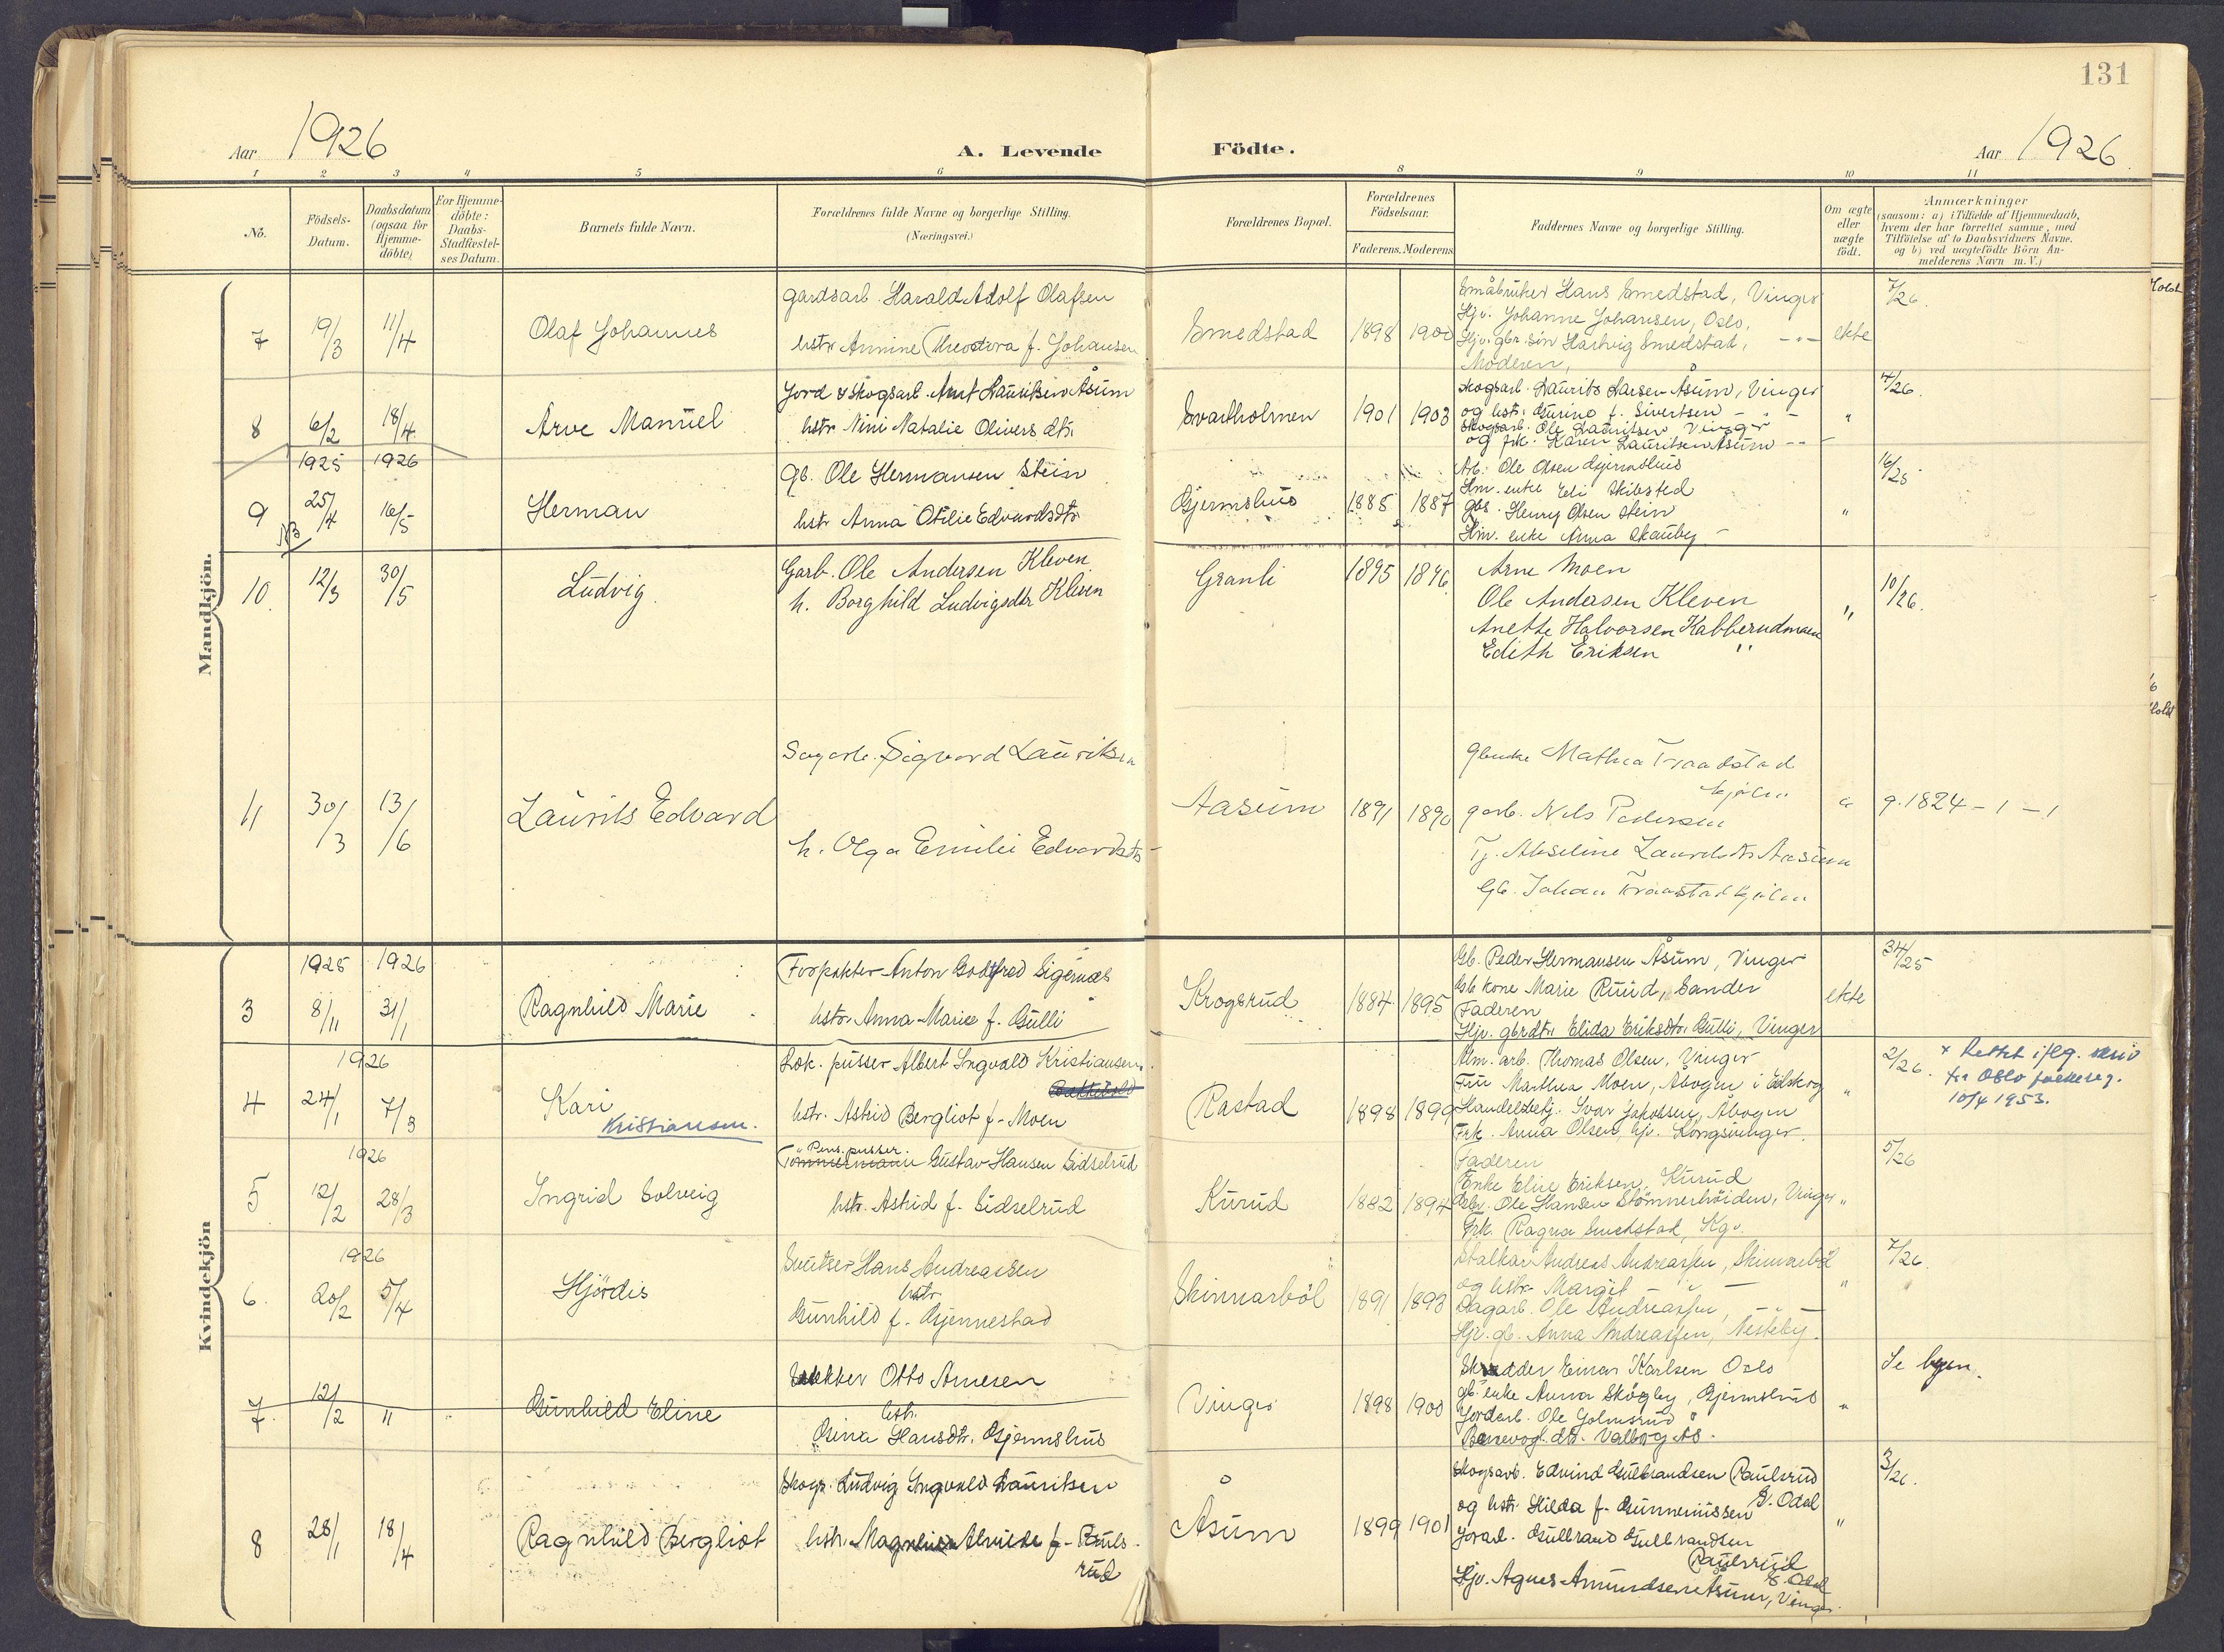 131
Aar 1926
A. Levende Födte.
Aar 1926.
1 2 3 4 5 6 8 9 10 11
No.
Födsels-Datum.
Daabsdatum (ogsaa for Hjemme-döbte)
For Hjemme-döbte: Daabs-Stadfæstel-ses Datum.
Barnets fulde Navn.
Forældrenes fulde Navne og borgerlige Stilling. (Næringsvei.)
Forældrenes Bopæl.
Forældrenes Födselsaar.
Faderens. Moderens
Faddernes Navne og borgerlige Stilling.
Om ægte eller uægte födt.
Anmærkninger
(saasom: a) i Tilfælde af Hjemmedaab,
hvem der har forrettet samme, med
Tilföielse af to Daabsvidners Navne.
og b) ved uægtefödte Börn An-
melderens Navn m. V.)
Mandkjön.
7 19/3 11/4 Olaf Johannes
gardsarb. Harald Adolf Olafsen
hstr Annine Theodora f. Johansen
Smedstad 1898 1900
Småbruker Hans Smedstad, Vinger
Hjv. Johanne Johansen, Oslo,
Hjv. gbr. sön Hartvig Smedstad, -"-
Moderen,
ekte 7/26.
8 6/2 18/4 Arve Manuel
Jord & skogsarb. Arnt Lauritsen Åsum
hstr Nini Natalie Olivers dtr.
Svartholmen 1901 1903
skogsarb. Laurits Larsen Åsum, Vinger
og hstr. Gurine f. Sivertsen - " -
Skogsarb. Ole Lauritsen Vinger
og frk. Karen Lauritsen Åsum -"-
" 4/26.
1925 1926
9 25/4 16/5 Herman
NB
Gb. Ole Hermansen Stein
hstr Anna Otilie Edvardsdtr
Gjermshus 1885 1887
Arb. Ole Olsen Gjermshus
Hm. enke Eli Skibsted
gbs. Henry Olsen Stein
Hm. enke Anna Skauby -
" 16/25
10. 12/3 30/5 Ludvig.
Garb. Ole Andersen Kleven
h. Borghild Ludvigsdtr Kleven
Granli 1895 1896
Arne Moen
Ole Andersen Kleven
Anette Halvorsen Kabberudmoen
Edith Eriksen "
" 10/26.
11 30/3 13/6 Laurits Edvard
Sagarb. Sigvard Lauritsen
h. Olga Emilie Edvardsdtr
Aasum 1891 1890
Gbenke Mathea Traastad
garb. Nils Pedersen
Tj. Aasum
Gb. Johan Traastad
" g. 1824 - 1 - 1
Kvindekjön
1925 1926
3 8/11 31/1 Ragnhild Marie
Forpakter Anton Godtfred Sigernes
hstr. Anna Marie f. Gulli
Krogsrud 1884 1895
Gb. Peder Hermansen Åsum, Vinger
Gb kone Marie Ruud, Sander
Faderen
Hjv. gbrdtr. Elida Eriksdtr. Gulli, Vinger
ekte 34/25
1926
4 24/1 7/3 Kari
Kristiansen.
Lok. pusser Albert Ingvald Kristiansen
hstr. Astrid Bergliot f. Moen
Rastad 1898 1899
Alm. arb. Thomas Olsen, Vinger
Fru Marthea Moen, Åbogen i Eidskog
Handelsbetj. Ivar Jakobsen, Åbogen
Frk. Anna Olsen, hjv. Kongsvinger.
" 2/26.
x Rettet iflg. skriv
fra Oslo folkereg.
10/4 1953.
1926
5 12/2 28/3 Ingrid Solveig
" Pens. pusser.
Tömmermann Gustav Hansen Sidselrud
hstr. Astrid f. Sidselrud
Kurud 1882 1894
Faderen
Enke Elise Eriksen, Kurud
Gbr. Ole Hansen Stömnerhöiden, Vinger
Frk. Ragna Smedstad, Kgv.
" 5/26
1926
6. 20/2 5/4 Hjördis
Sveitser Hans Andreassen
hstr
Gunhild f. Gjennestad
Skinnarböl 1891 1893
Stalkar Andreas Andreassen, Skinnarböl
og hstr Margit - " -
Dagarb. Ole Andreassen, - " -
Hjv. gb. Anna Andreassen, Nesteby.
" 7/26.
7. 12/2 " Gunhild Eline
Snekker Otto Arnesen
hstr.
Gina Hansdtr. Gjermshus
Vinger 1898 1900
Skredder Einar Karlsen Oslo
gb. enke Anna Skögby, Gjermshus
Jordarb. Ole Golmsrud "
Banevogt. dtr. Valborg As.
" Se byen.
8 28/1 18/4 Ragnhild Bergliot
Skogr. Ludvig Ingvald Lauritsen
hstr. Magnhild Almede f. Pauls-
rud
Åsum 1899 1901
Skogsarb. Edvind Gulbrandsen Paulsrud
og hstr. Hilda f. Gunneriussen S. Odal
Jorarb. Gulbrand Gulbrandsen
Paulsrud
S. Odal
Hjv. Agnes Amundsen Åsum, Vinger.
" 3/26.